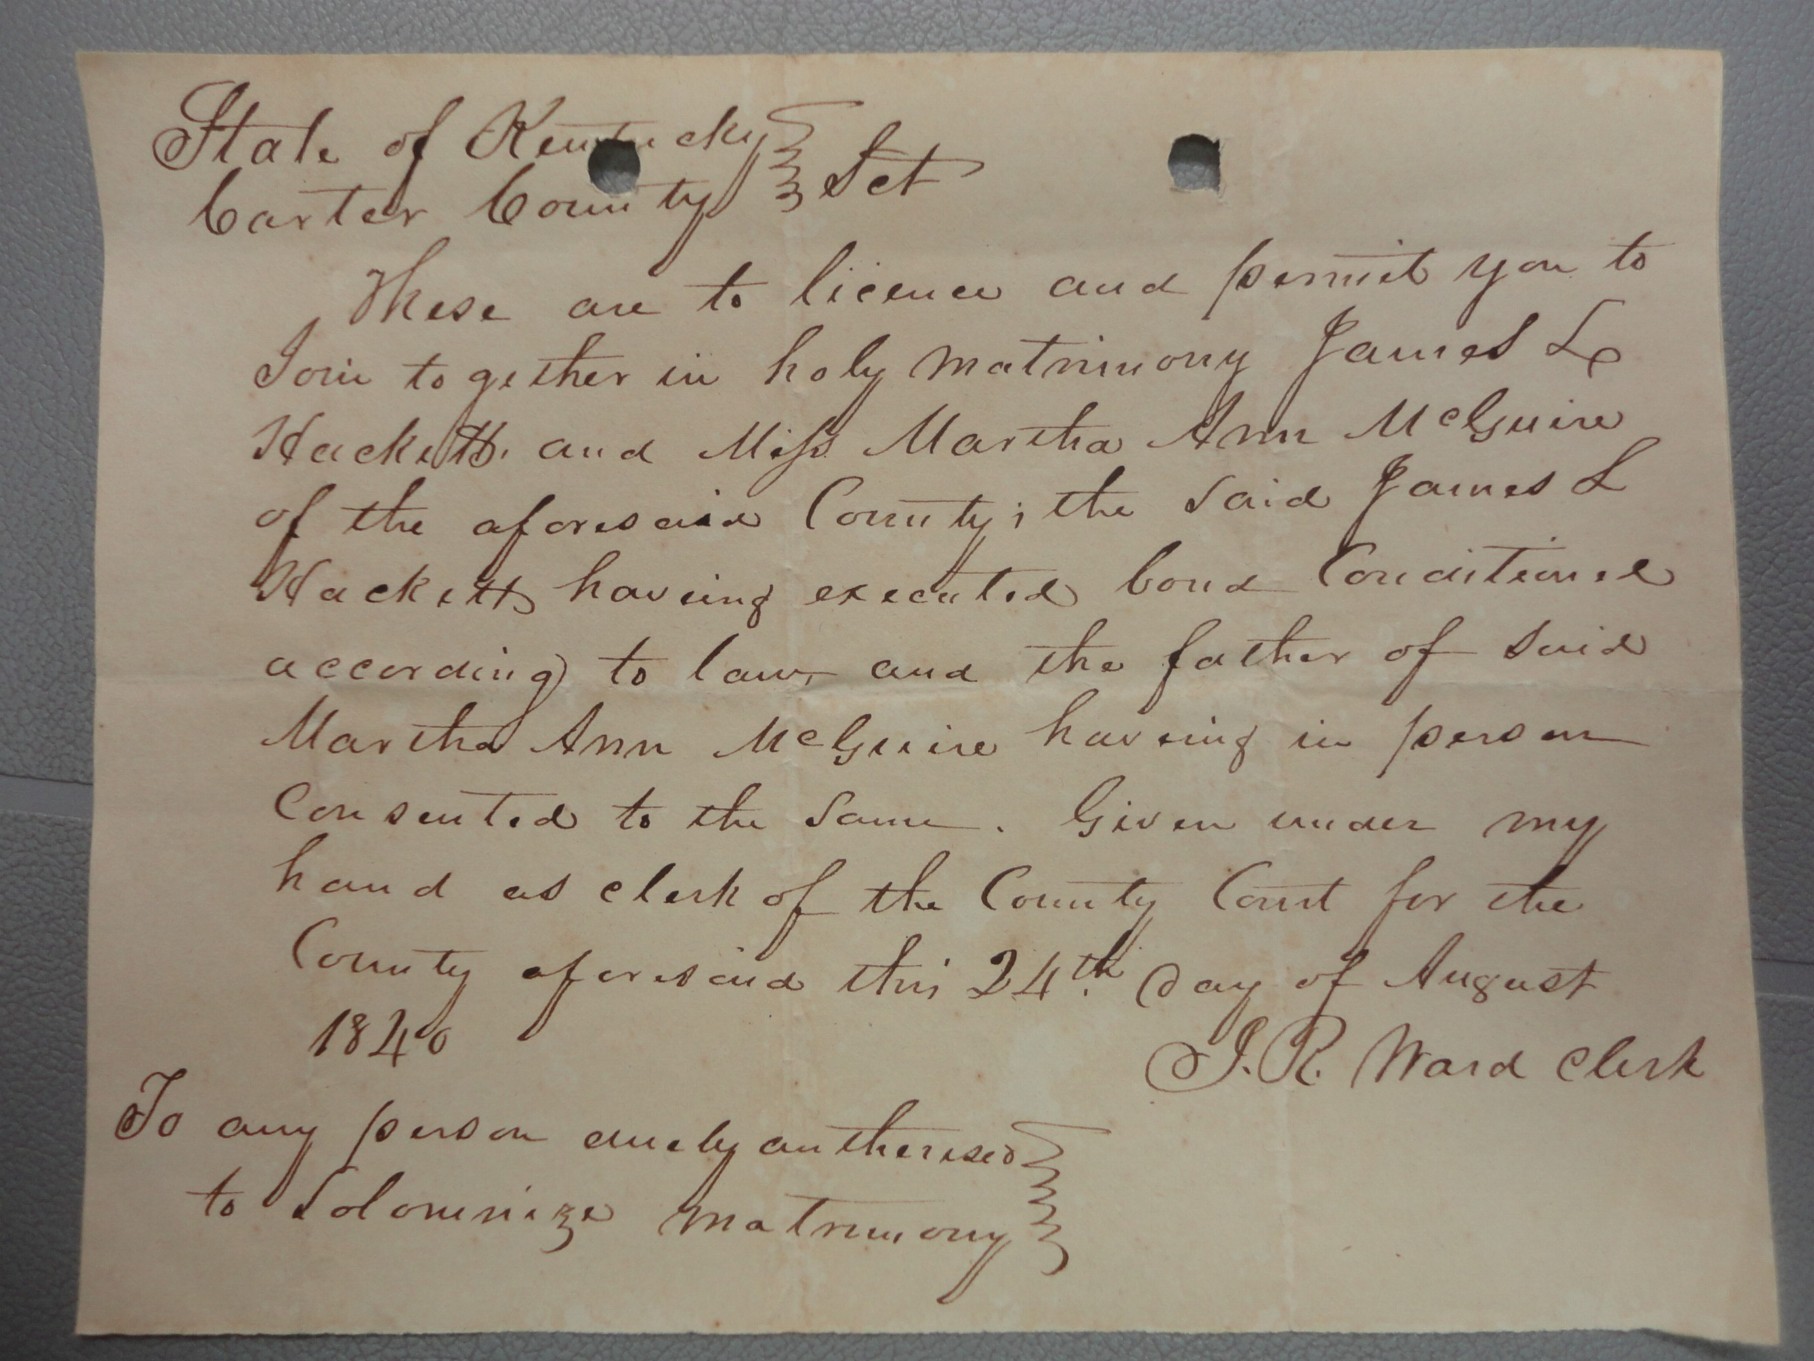 State of Kentucky
Carter County } Sct
These are to licence and permit you to
Join together in holy matrimony James L
Hackett. and Miss Martha Ann McGuire
of the aforesaid County; the said James L
Hackett haveing executed bond Conditioned
according to law, and the father of said
Martha Ann McGuire haveing in person
Consented to the same. Given under my
hand as clerk of the County Court for the
County aforesaid this 24th. day of August
1840
J. R. Ward Clerk
To any person duely autherised
to Solominize matrimony }